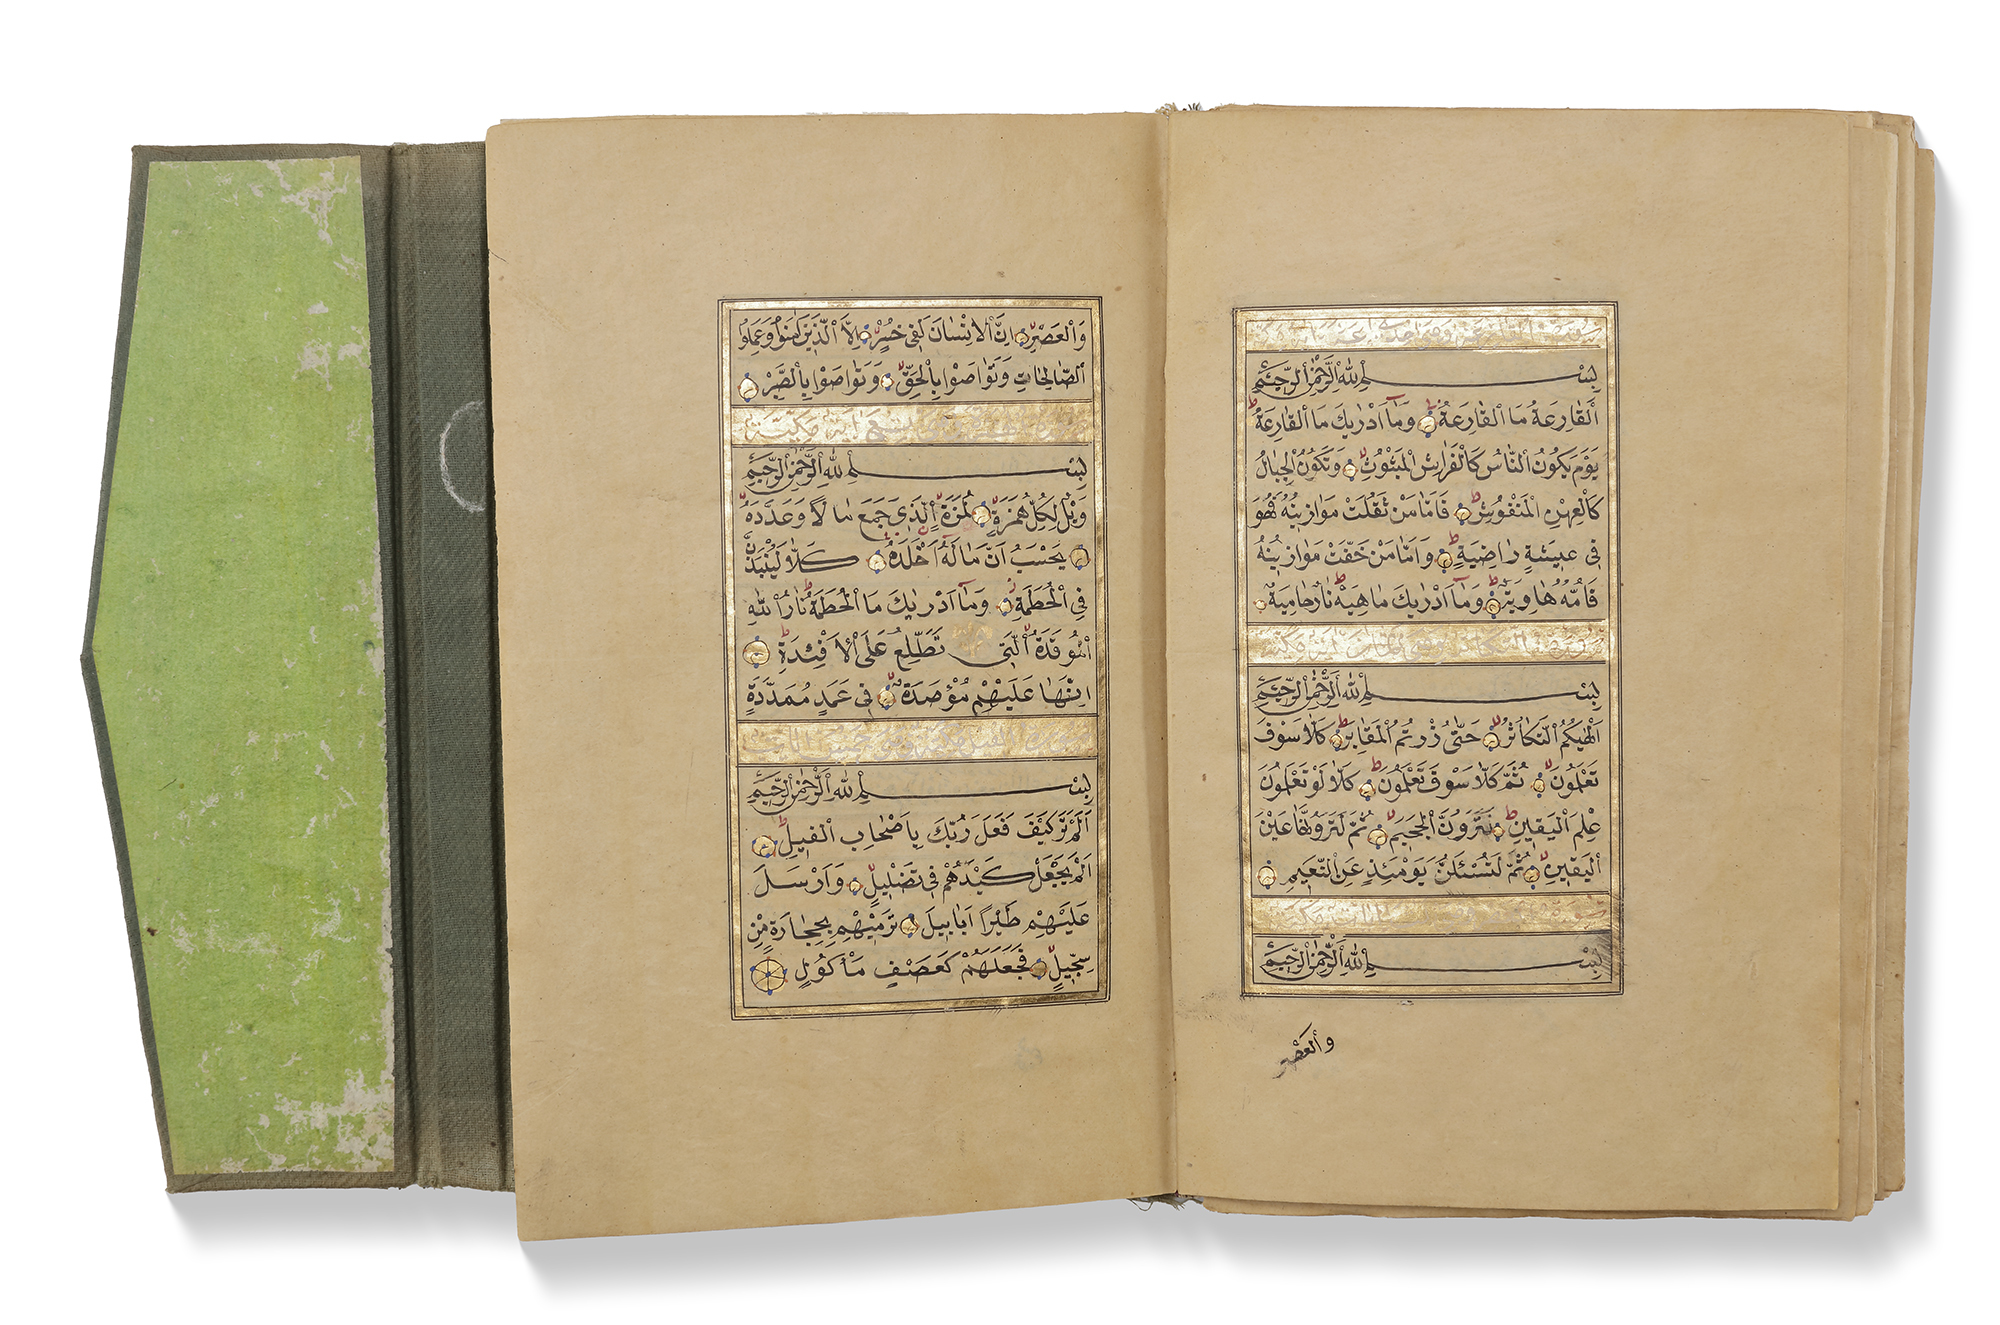 سورة القارعة
بِسْمِ اللّٰهِ الرَّحْمٰنِ الرَّحِيمِ
اَلْقَارِعَةُ مَا الْقَارِعَةُ وَمَا اَدْرٰيكَ مَا الْقَارِعَةُ
يَوْمَ يَكُونُ النَّاسُ كَالْفَرَاشِ الْمَبْثُوثِ وَتَكُونُ الْجِبَالُ
كَالْعِهْنِ الْمَنْفُوشِ فَاَمَّا مَنْ ثَقُلَتْ مَوَازِينُهُ فَهُوَ
فِي عِيشَةٍ رَاضِيَةٍ وَاَمَّا مَنْ خَفَّتْ مَوَازِينُهُ
فَاُمُّهُ هَاوِيَةٌ وَمَا اَدْرٰيكَ مَاهِيَهْ نَارٌ حَامِيَةٌ
سورة التكاثر وهي ثمان اية مكية
بِسْمِ اللّٰهِ الرَّحْمٰنِ الرَّحِيمِ
اَلْهٰيكُمُ التَّكَاثُرُ حَتّٰى زُرْتُمُ الْمَقَابِرَ كَلَّا سَوْفَ
تَعْلَمُونَ ثُمَّ كَلَّا سَوْفَ تَعْلَمُونَ كَلَّا لَوْ تَعْلَمُونَ
عِلْمَ الْيَقِينِ لَتَرَوُنَّ الْجَحِيمَ ثُمَّ لَتَرَوُنَّهَا عَيْنَ
الْيَقِينِ ثُمَّ لَتُسْئَلُنَّ يَوْمَئِذٍ عَنِ النَّعِيمِ
بِسْمِ اللّٰهِ الرَّحْمٰنِ الرَّحِيمِ
والعصر
وَالْعَصْرِ اِنَّ الْاِنْسَانَ لَفِي خُسْرٍ اِلَّا الَّذِينَ اٰمَنُوا وَعَمِلُوا
الصَّالِحَاتِ وَتَوَاصَوْا بِالْحَقِّ وَتَوَاصَوْا بِالصَّبْرِ
سورة الهمزة وهي تسع اية مكية
بِسْمِ اللّٰهِ الرَّحْمٰنِ الرَّحِيمِ
وَيْلٌ لِكُلِّ هُمَزَةٍ لُمَزَةٍ اَلَّذِي جَمَعَ مَالًا وَعَدَّدَهُ
يَحْسَبُ اَنَّ مَالَهُ اَخْلَدَهُ كَلَّا لَيُنْبَذَنَّ
فِي الْحُطَمَةِ وَمَا اَدْرٰيكَ مَا الْحُطَمَةُ نَارُ اللّٰهِ
الْمُوقَدَةُ اَلَّتِي تَطَّلِعُ عَلَى الْاَفْئِدَةِ
اِنَّهَا عَلَيْهِمْ مُؤْصَدَةٌ فِي عَمَدٍ مُمَدَّدَةٍ
سورة الفيل مكية وهي خمس ايات
بِسْمِ اللّٰهِ الرَّحْمٰنِ الرَّحِيمِ
اَلَمْ تَرَ كَيْفَ فَعَلَ رَبُّكَ بِاَصْحَابِ الْفِيلِ
اَلَمْ يَجْعَلْ كَيْدَهُمْ فِي تَضْلِيلٍ وَاَرْسَلَ
عَلَيْهِمْ طَيْرًا اَبَابِيلَ تَرْمِيهِمْ بِحِجَارَةٍ مِنْ
سِجِّيلٍ فَجَعَلَهُمْ كَعَصْفٍ مَأْكُولٍ